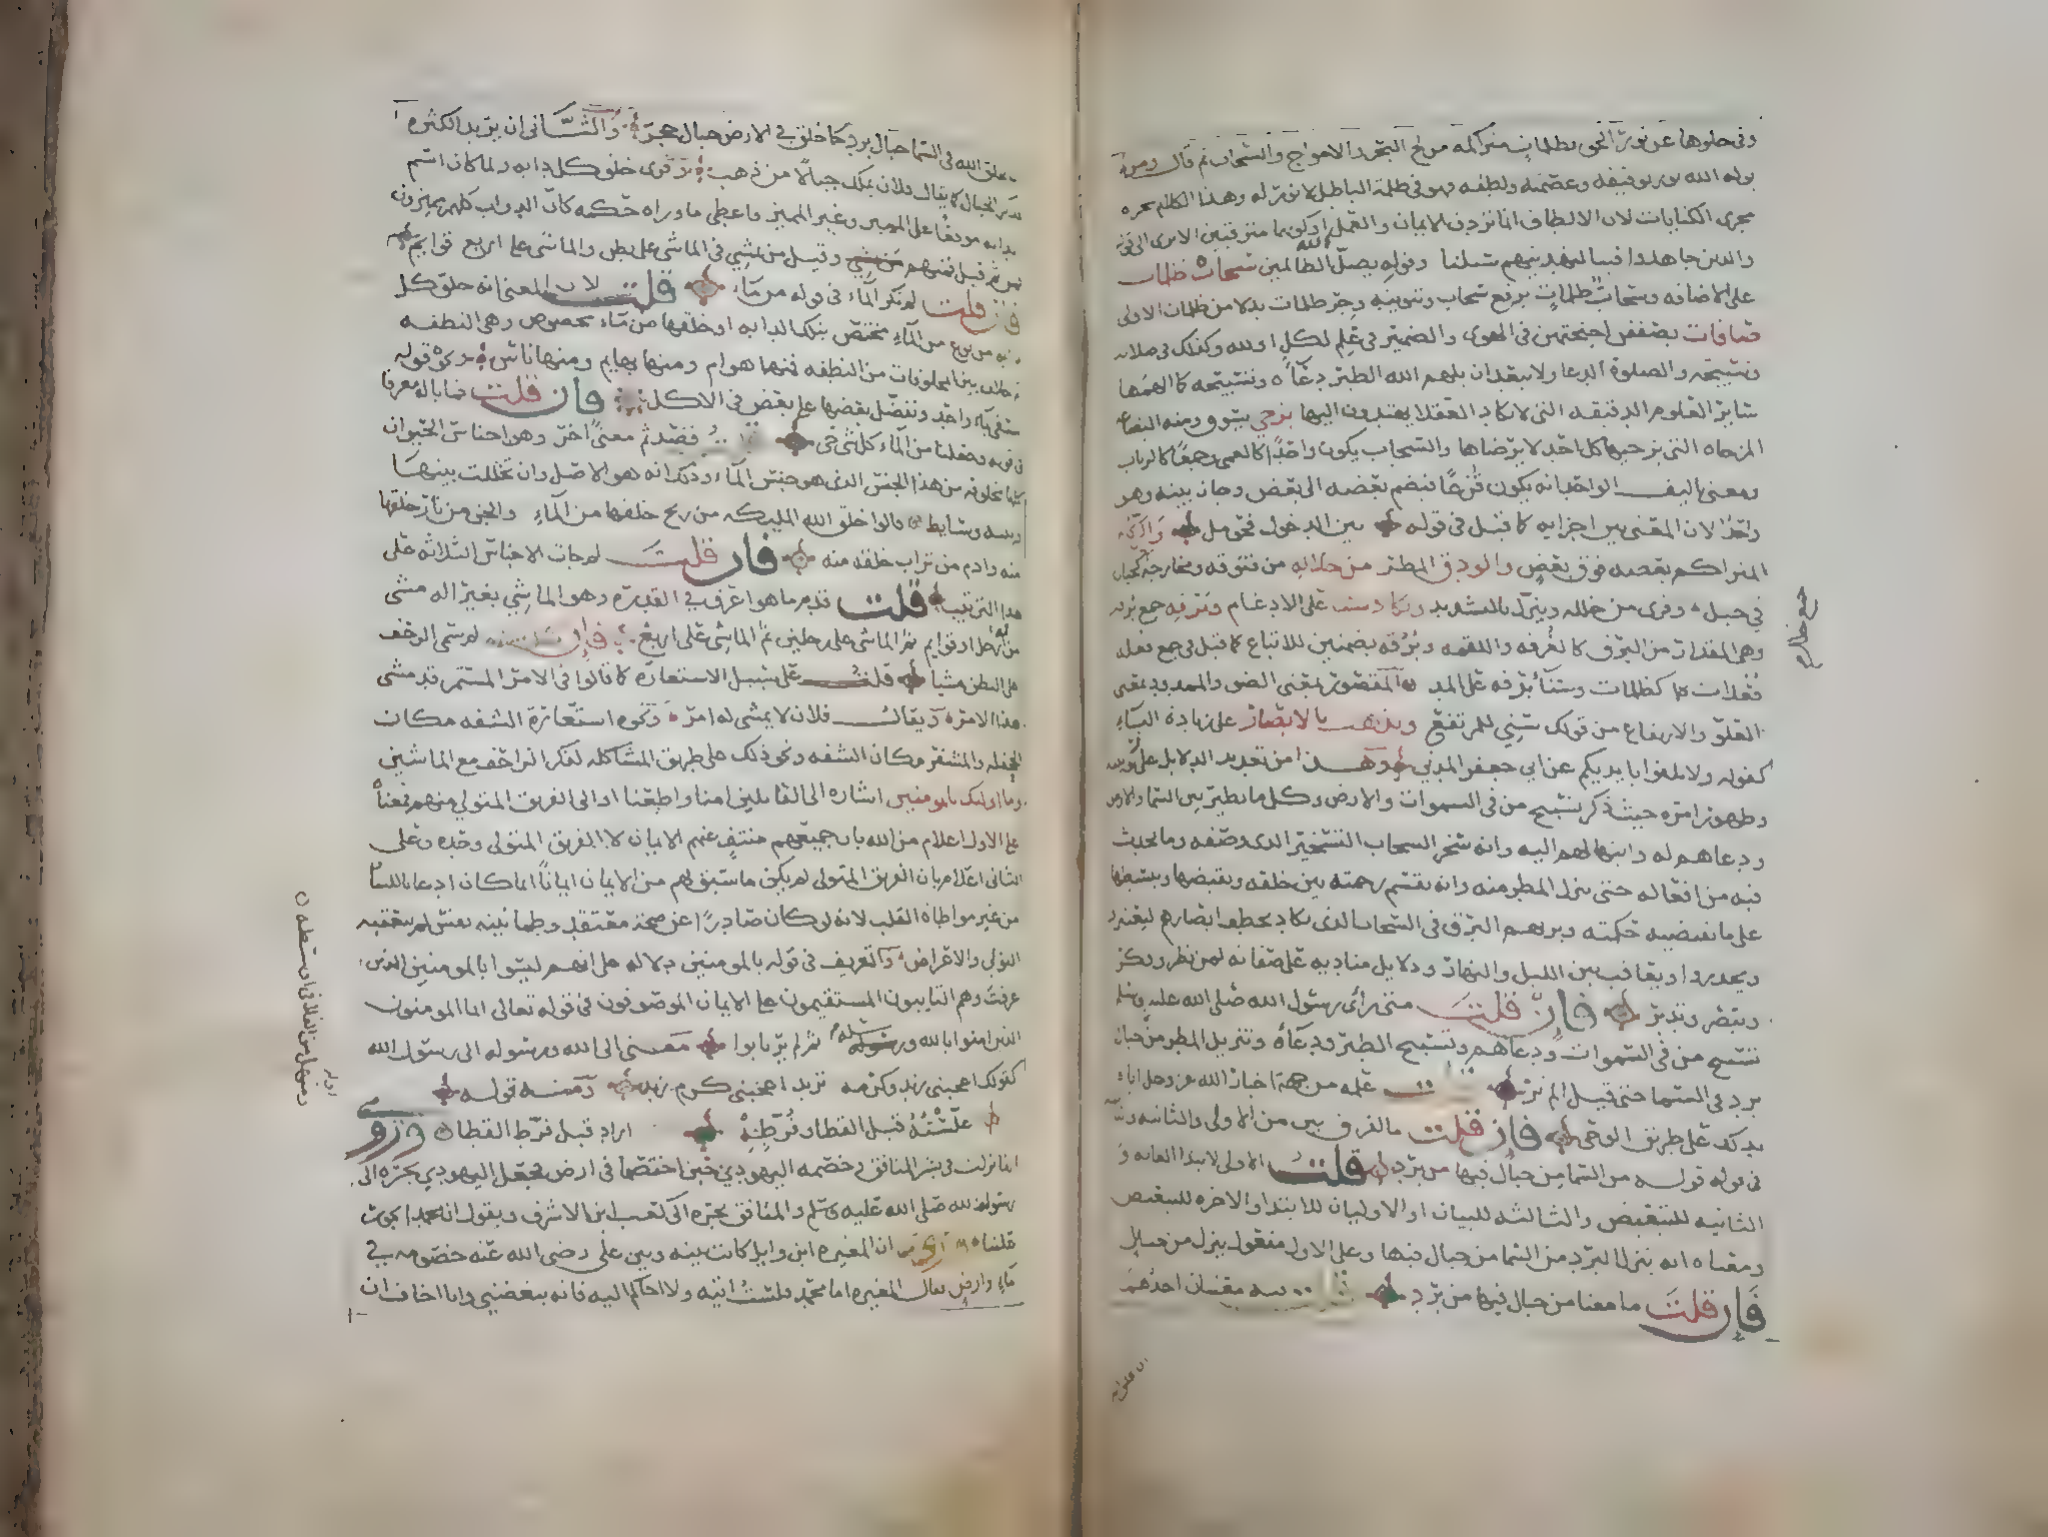 وفى خلوها عن نور الحق بظلمات متراكمة من لج البحر والامواج والسحاب ثم قال ومن
يوله الله نور توفيقه وعصمته ولطفه فهو فى ظلمة الباطل لا نور له وهذا الكلام مجراه
مجرى الكنايات لان الالطاف انما تردف الايمان والعمل او كونهما مترقبين الا ترى الى قوله
والذين جاهدوا فينا لنهدينهم سبلنا وقوله يضل الله الظالمين سحاب ظلمات
على الاضافه وسحاب ظلمات برفع سحاب وتنوينه وجر ظلمات بدلا من ظلمات الاولى
صافات يصففن اجنحتهن فى الهوى والضمير فى علم لكل او لله وكذلك فى صلاته
وتسبيحه والصلوة الدعا ولا يبعد ان يلهم الله الطير دعاءه وتسبيحه كما الهمها
سائر العلوم الدقيقه التى لا يكاد العقلا يهتدون اليها يزجى يسوق ومنه البضاعه
المزجاه التى يزجيها كل احد لا يرضاها والسحاب يكون واحدا كالعمى وجمعا كالرباب
ومعنى تاليف الواحد انه يكون قزعا فيضم بعضه الى بعض وجاز بينه وهو
واحد لان المعنى بين اجزايه كما قيل فى قوله بين الدخول فحومل والركام
المتراكم بعضه فوق بعض والودق المطر من خلاله من فتوقه ومخارجه كجبال
فى جبل وقرى من خلله وينزل بالتشديد ويكاد سنا على الادغام وبرقه جمع برقه
وهى المقدار من البرق كالغرفه واللقمه وبرقه بضمتين للاتباع كما قيل فى جمع فعله
فعلات كظلمات وسناء برقه على المد المقصور بمعنى الضو والممدود بمعنى
العلو والارتفاع من قولك سنى للمرتفع ويذهب بالابصار على زيادة الباء
كقوله ولا تلقوا بايديكم عن ابى جعفر المدنى وهذا من تعديد الدلايل على ربوبيته
وظهور امره حيث ذكر تسبيح من فى السموات والارض وكل ما يطير بين السما والارض
ودعاهم له وابتهالهم اليه وانه سخر السحاب التسخير الذى وصفه وما يحدث
فيه من افعاله حتى ينزل المطر منه وانه يقسم رحمته بين خلقه ويقبضها ويبسطها
على ما تقتضيه حكمته ويريهم البرق فى السحاب الذى يكاد يخطف ابصارهم ليعتبروا
ويحذروا ويعاقب بين الليل والنهار ودلايل مناديه على صفاته لمن نظر وفكر
وتبصر وتدبر فان قلت متى راى رسول الله صلى الله عليه وسلم
تسبيح من فى السموات ودعاهم وتسبيح الطير ودعاه وتنزيل المطر من جبال
برد فى السما حتى قيل الم تر قلت علمه من جهة اخبار الله عز وجل اياه
بذلك على طريق الوحى فان قلت ما الفرق بين من الاولى والثانيه والثالثه
فى قوله من السما من جبال فيها من برد قلت الاولى لابتدا الغايه و
الثانيه للتبعيض والثالثه للبيان او الاوليان للابتدا والاخره للتبعيض
ومعناه انه ينزل البرد من السما من جبال فيها وعلى الاول مفعول ينزل من جبال
فان قلت ما معنا من جبال فيها من برد قلت فيه معنيان احدهما
ان يخلق الله فى السما جبال برد كما خلق فى الارض جبال حجر والثانى ان يريد الكثره
بذكر الجبال كما يقال فلان يملك جبالا من ذهب وقرى خالق كل دابه ولما كان اسم
الدابه موقعا على المميز وغير المميز فاعطى ما وراه حكمه كان الدواب كلهم مميزون
فمن ثم قيل فمنهم وقيل من يمشى فى الماشى على بطن والماشى على اربع قوايم
فان قلت لم نكر الماء فى قوله من ماء قلت لان المعنى انه خلق كل
دابه من نوع من الماء مختص بتلك الدابه او خلقها من ماء مخصوص وهى النطفه
ثم خالف بين المخلوقات من النطفه فمنها هوام ومنها بهايم ومنها ناس ونحوه قوله
يسقى بماء واحد ونفضل بعضها على بعض فى الاكل فان قلت فما باله معرفا
فى قوله وجعلنا من الماء كل شى حى قلت قصد ثم معنى اخر وهو ان اجناس الحيوان
كلها مخلوقه من هذا الجنس الذى هو جنس الماء وذلك انه هو الاصل وان تخللت بينها
وبينه وسايط قالوا خلق الله المليكه من ريح خلقها من الماء والجن من نار خلقها
منه وادم من تراب خلقه منه فان قلت لم جات الاجناس الثلاثه على
هذا الترتيب قلت قدم ما هو اعرق فى القدره وهو الماشى بغير اله مشى
من ارجل او قوايم ثم الماشى على رجلين ثم الماشى على اربع فان قلت لم سمى الزحف
على البطن مشيا قلت على سبيل الاستعاره كما قالوا فى الامر المستمر قد مشى
هذا الامر ويقال فلان لا يمشى له امر ونحوه استعارة الشفه مكان
الجحفله والمشفر مكان الشفه ونحو ذلك على طريق المشاكله لذكر الزاحف مع الماشين
وما اوليك بالمومنين اشاره الى القايلين امنا واطعنا او الى الفريق المتولى منهم فمعناه
على الاول اعلام من الله بان جميعهم منتف عنهم الايمان لا الفريق المتولى وحده وعلى
الثانى اعلام بان الفريق المتولى لم يكن ما سبق لهم من الايمان ايمانا انما كان ادعا باللسان
من غير مواطاة القلب لانه لو كان صادرا عن صحة معتقد وطمانينه نفس لم يتعقبه
التولى والاعراض والتعريف فى قوله بالمومنين دلاله على انهم ليسوا بالمومنين الذين
عرفت وهم الثابتون المستقيمون على الايمان الموصوفون فى قوله تعالى انما المومنون
الذين امنوا بالله ورسوله ثم لم يرتابوا معنى الى الله ورسوله الى رسول الله
كقولك اعجبنى زيد وكرمه تريد اعجبنى كرم زيد ومنه قوله
غلسته قبل القطا وفرطه اراد قبل فرط القطا وروى
انها نزلت فى بشر المنافق وخصمه اليهودى حين اختصما فى ارض فجعل اليهودى يجره الى
رسول الله صلى الله عليه وسلم والمنافق يجره الى كعب ابن الاشرف ويقول ان محمدا يحيف
علينا ان المغيره ابن وايل كانت بينه وبين على رضى الله عنه خصومه فى
ماء وارض فقال المغيره اما محمد فلست اتيه ولا احاكم اليه فانه يبغضنى وانا اخاف ان